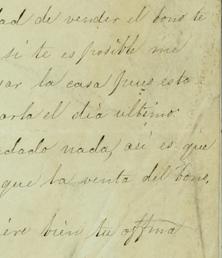 dad de vender el bono te
si te es posible me
sar la casa pues esto
arla el dia ultimo.
edado nada, asi es que
que la venta del bono,
ére bien tu affma